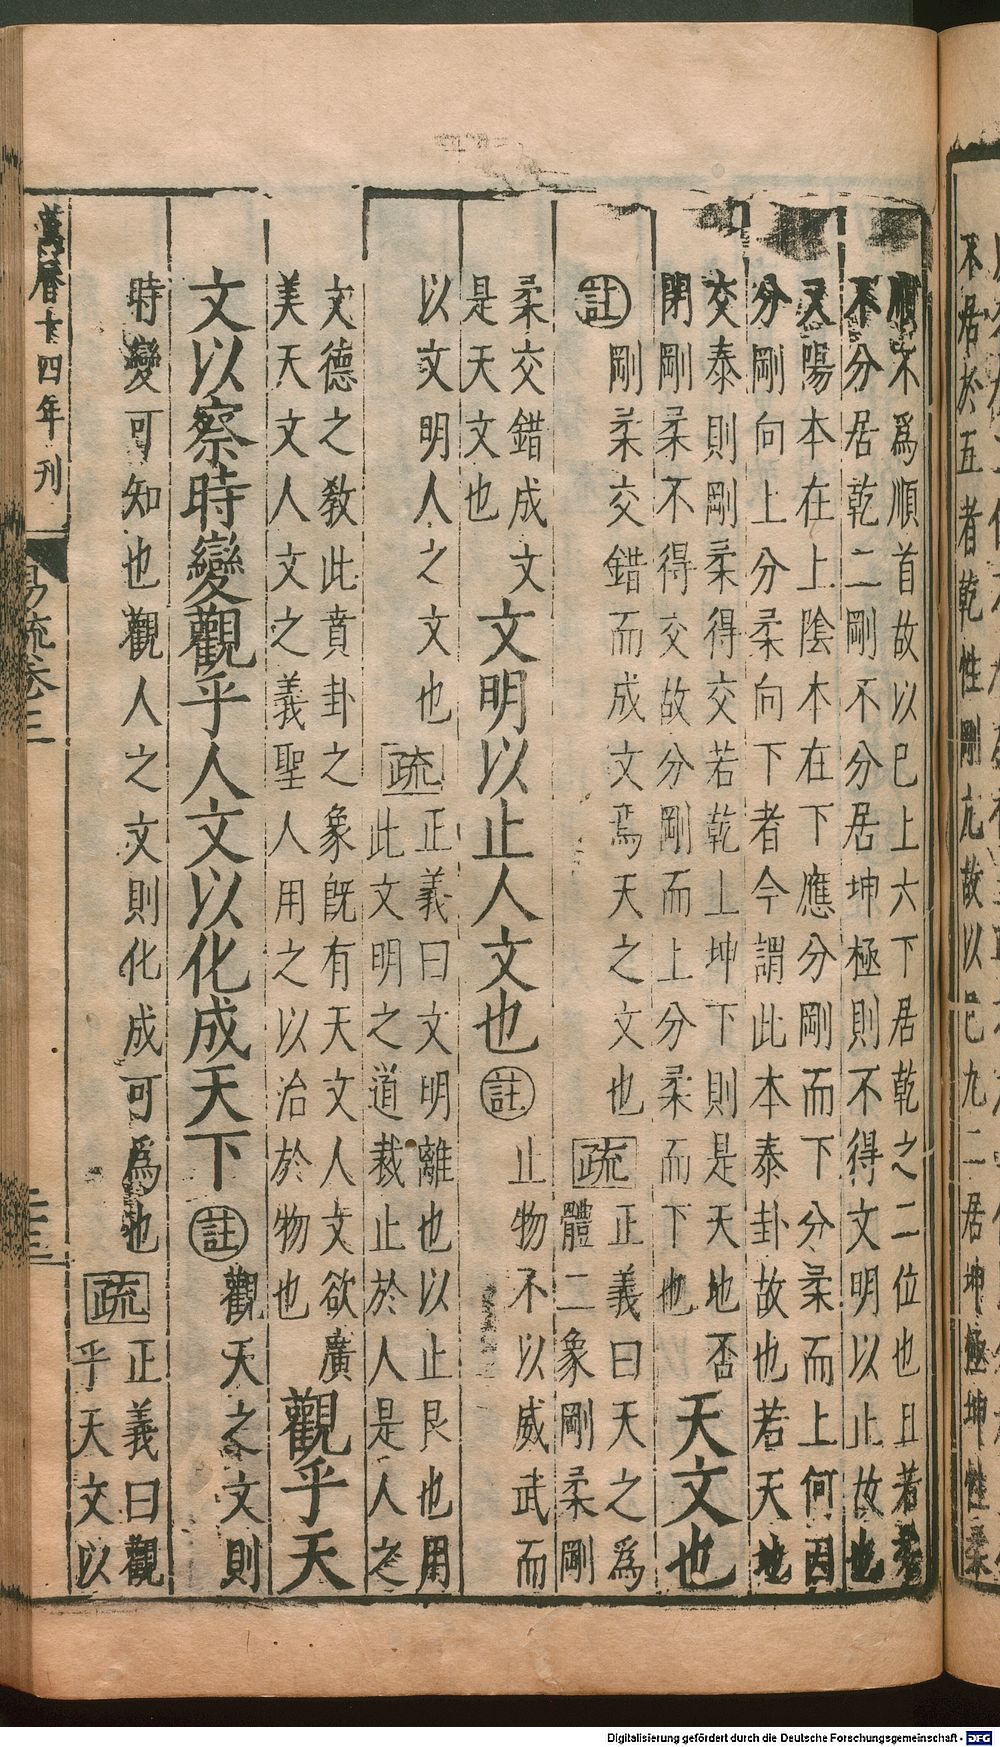 不居於五者乾性剛亢故以己九二居坤極坤性柔
順不爲順首故以巳上六下居乾之二位也且若柔
不分居乾二剛不分居坤極則不得文明以止故也
又陽本在上陰本在下應分剛而下分柔而上何因
分剛向上分柔向下者今謂此本泰卦故也若天地
交泰則剛柔得交若乾上坤下則是天地否
閉剛柔不得交故分剛而上分柔而下也
天文也
註 剛柔交錯而成文焉天之文也 疏 正義曰天之爲
體二象剛柔剛
柔交錯成文
是天文也
文明以止人文也 註 止物不以威武而
以文明人之文也 疏 正義曰文明離也以止艮也用
此文明之道裁止於人是人之
文德之敎此賁卦之象旣有天文人文欲廣
美天文人文之義聖人用之以治於物也
觀乎天
文以察時變觀乎人文以化成天下 註 觀天之文則
時變可知也觀人之文則化成可爲也 疏 正義曰觀
乎天文以
萬曆十四年刊
易疏卷三
Digitalisierung gefördert durch die Deutsche Forschungsgemeinschaft - DFG